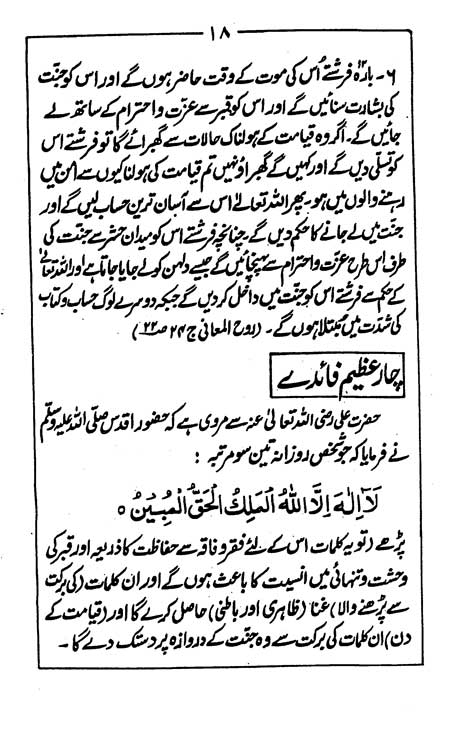 ۱۸
۶۔ بارہ فرشتے اُس کی موت کے وقت حاضر ہوں گے اور اس کو جنّت
کی بشارت سنائیں گے اور اس کو قبر سے عزّت و احترام کے ساتھ لے
جائیں گے۔ اگر وہ قیامت کے ہولناک حالات سے گھبرائے گا تو فرشتے اس
کو تسلّی دیں گے اور کہیں گے گھبراؤ نہیں تم قیامت کی ہولناکیوں سے امن میں
رہنے والوں میں ہو۔ پھر اللہ تعالیٰ اس سے آسان ترین حساب لیں گے اور
جنّت میں لے جانے کا حکم دیں گے، چنانچہ فرشتے اس کو میدانِ حشر سے جنّت کی
طرف اس طرح عزّت و احترام سے پہنچائیں گے جیسے دلہن کو لے جایا جاتا ہے اور اللہ تعالیٰ
کے حکم سے فرشتے اس کو جنّت میں داخل کر دیں گے جبکہ دوسرے لوگ حساب و کتاب
کی شدّت میں مبتلا ہوں گے۔ (روح المعانی ج ۲۴ ص ۲۲)
چار عظیم فائدے
حضرت علی رضی اللہ تعالیٰ عنہ سے مروی ہے کہ حضور اقدس صلّی اللہ علیہ وسلّم
نے فرمایا کہ جو شخص روزانہ تین سو مرتبہ :
لَآ اِلٰهَ اِلَّا اللّٰهُ الْمَلِكُ الْحَقُّ الْمُبِیْنُ ٥
پڑھے (تو یہ کلمات اس کے لئے فقر و فاقہ سے حفاظت کا ذریعہ اور قبر کی
وحشت و تنہائی میں انسیت کا باعث ہوں گے اور ان کلمات (کی برکت
سے پڑھنے والا) غنا (ظاہری اور باطنی) حاصل کرے گا اور (قیامت کے
دن) ان کلمات کی برکت سے وہ جنّت کے دروازہ پر دستک دے گا۔